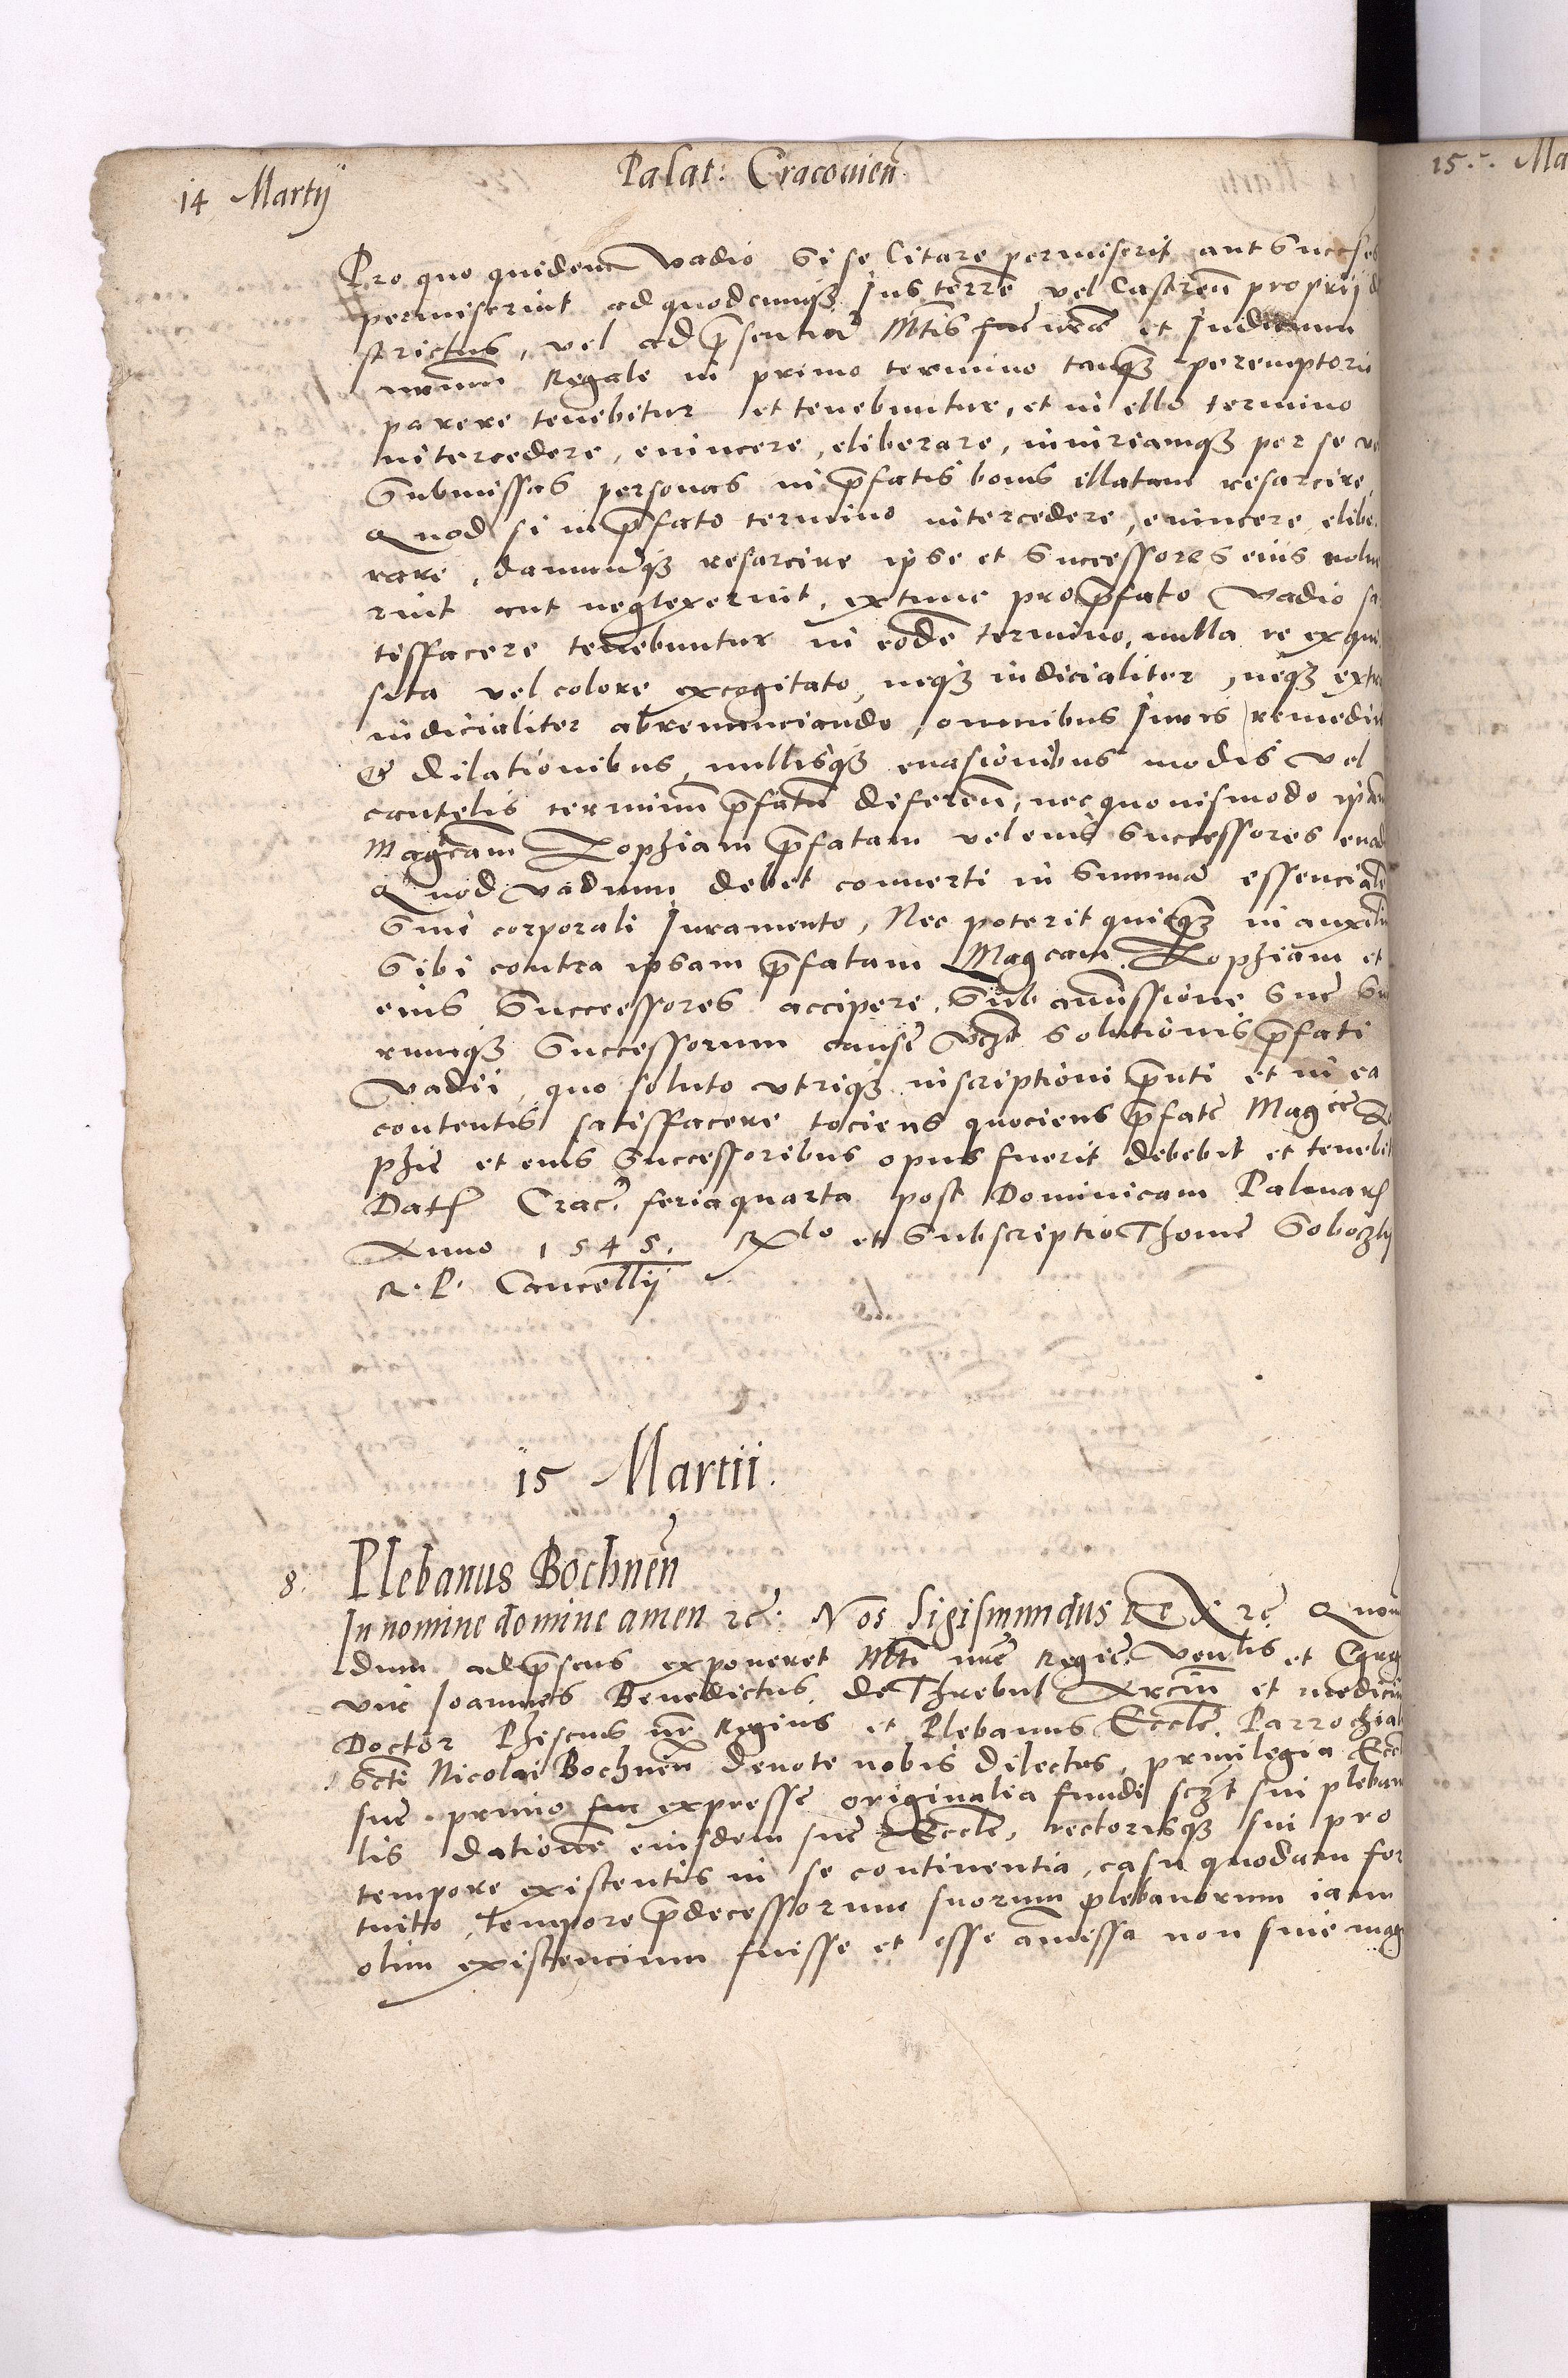 14 Martij
Palat: Cracovien
Pro quo quidem vadio si se Citare permiserit aut Succes
permiserint ad quodcumq3 Jus terrē vel Castreñ proprij d
strictus, vel ad p̄sentiā Mtis n̄rae et Judicium
nr̄um Regale in primo termino tanq3 peremptorio
parere tenebitur et tenebuntur, et in illo termino
intercedere, evincere, eliberare, iniuriamq3 per se ve
Submissas personas in p̄fatis bonis illatam resarcire,
Quod si in p̄fato termino intercedere, evincere elibe
rare, damnūq3 resarcire ipse et Successores eius nolue
rint aut neglexerint, extunc pro p̄fato vadio sa
tisfacere tenebuntur in eodē termino, nulla re exqui
sita vel colore excogitato, neq3 iudicialiter, neq3 extra
iudicialiter abrenunciando, omnibus Juris remediis
& dilationibus, nullisq3 evasionibus modis vel
cautelis terminū p̄fatū differen̄, nec quovismodo ipsam
Magcam Zophiam p̄fatam vel eius Successores evad
Quod vadium debet converti in Summā essencialē
Sine corporali Juramento, Nec poterit quicq3 in auxiliū
Sibi contra ipsam p̄fatam Magcam Zophiam et
eius Successores accipere, Sub amissione Sue Su
rumq3 Successorum cause vz̄t solutionis p̄fati
vadii, quo soluto utriq3 inscriptioni p̄nti et in ea
contentis satisfacere tociens quociens p̄fate Magce Zo
phie et eius Successoribus opus fuerit debebit et tenebit
Dat Crac. feria quarta post Dominicam Palmar
Anno 1545. Rlo et Subscriptio Thome Soboczky
R. P. Cancellij
15 Martii.
8. Plebanus Bochnen̄
In nomine domine amen rc. Nos Sigismundus REX rc̄ Quom
dum ad p̄sens exponeret Mti nr̄e Regie, Ven̄lis et Egreg
vir Joannes Benedictus de Threbul Arciū et medicin
Doctor Phiscus nr̄ Regius et Plebanus Eccle Parrochial
Scti Nicolai Bochnen̄ devote nobis dilectus, privilegia Eccl
sue primo expresse originalia fundi sczt sui pleban
lis dationē eiusdem sue Eccle, rectorisq3 sui pro
tempore existentis in se continentia, casu quodam for
tuito, tempore p̄decessorum suorum plebanorum iam
olim existencium fuisse et esse amissa non sine mag
15 Ma